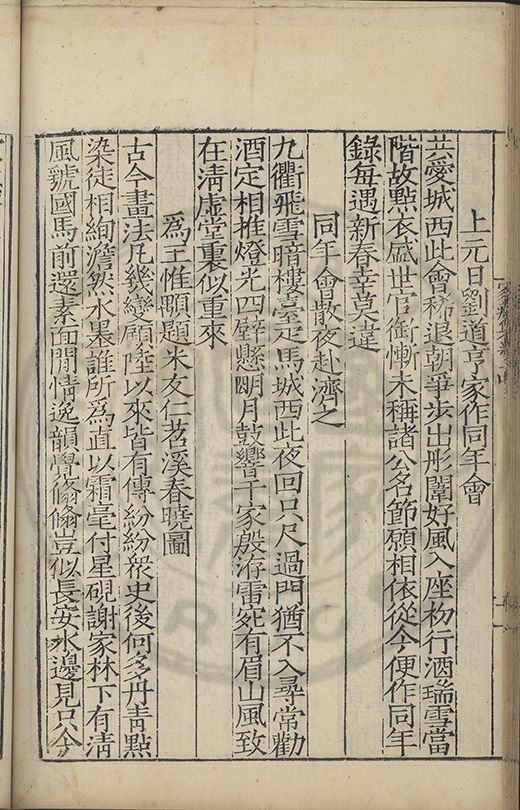 上元日劉道亨家作同年會
共愛城西此會稀退朝爭步出彤闈好風入座初行酒瑞雪當
階故點衣盛世官銜慚未稱諸公名節願相依從今便作同年
錄每遇新春幸莫違
同年會散夜赴濟之
九衢飛雪暗樓臺走馬城西此夜回只尺過門猶不入尋常勸
酒定相推燈光四壁懸明月鼓響千家殷洊雷宛有眉山風致
在清虛堂裏似重來
為王惟顒題米友仁苕溪春曉圖
古今畫法凡幾變顧陸以來皆有傳紛紛衆史後何多丹青點
染徒相絢澹然水墨誰所為直以霜毫付星硯謝家林下有清
風虢國馬前還素面閒情逸韻覺翛翛豈似長安水邊見只今
家藏集卷十